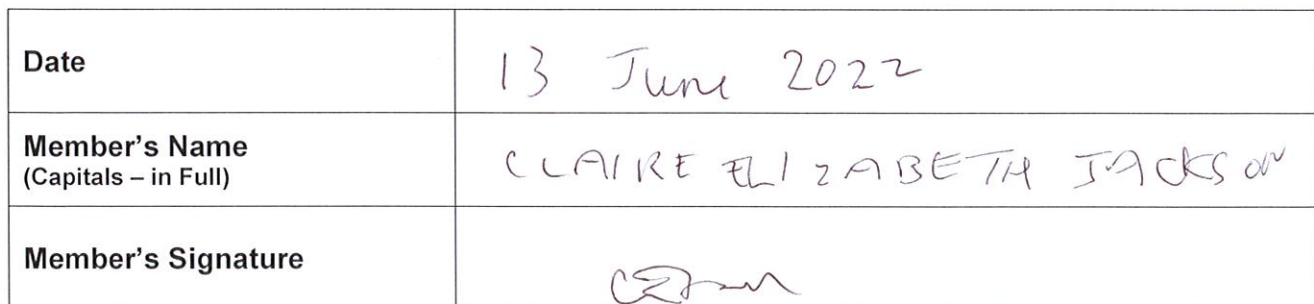 Date 13 June 2022
Member's Name
(Capitals – in Full) CLAIRE ELIZABETH JACKSON
Member's Signature